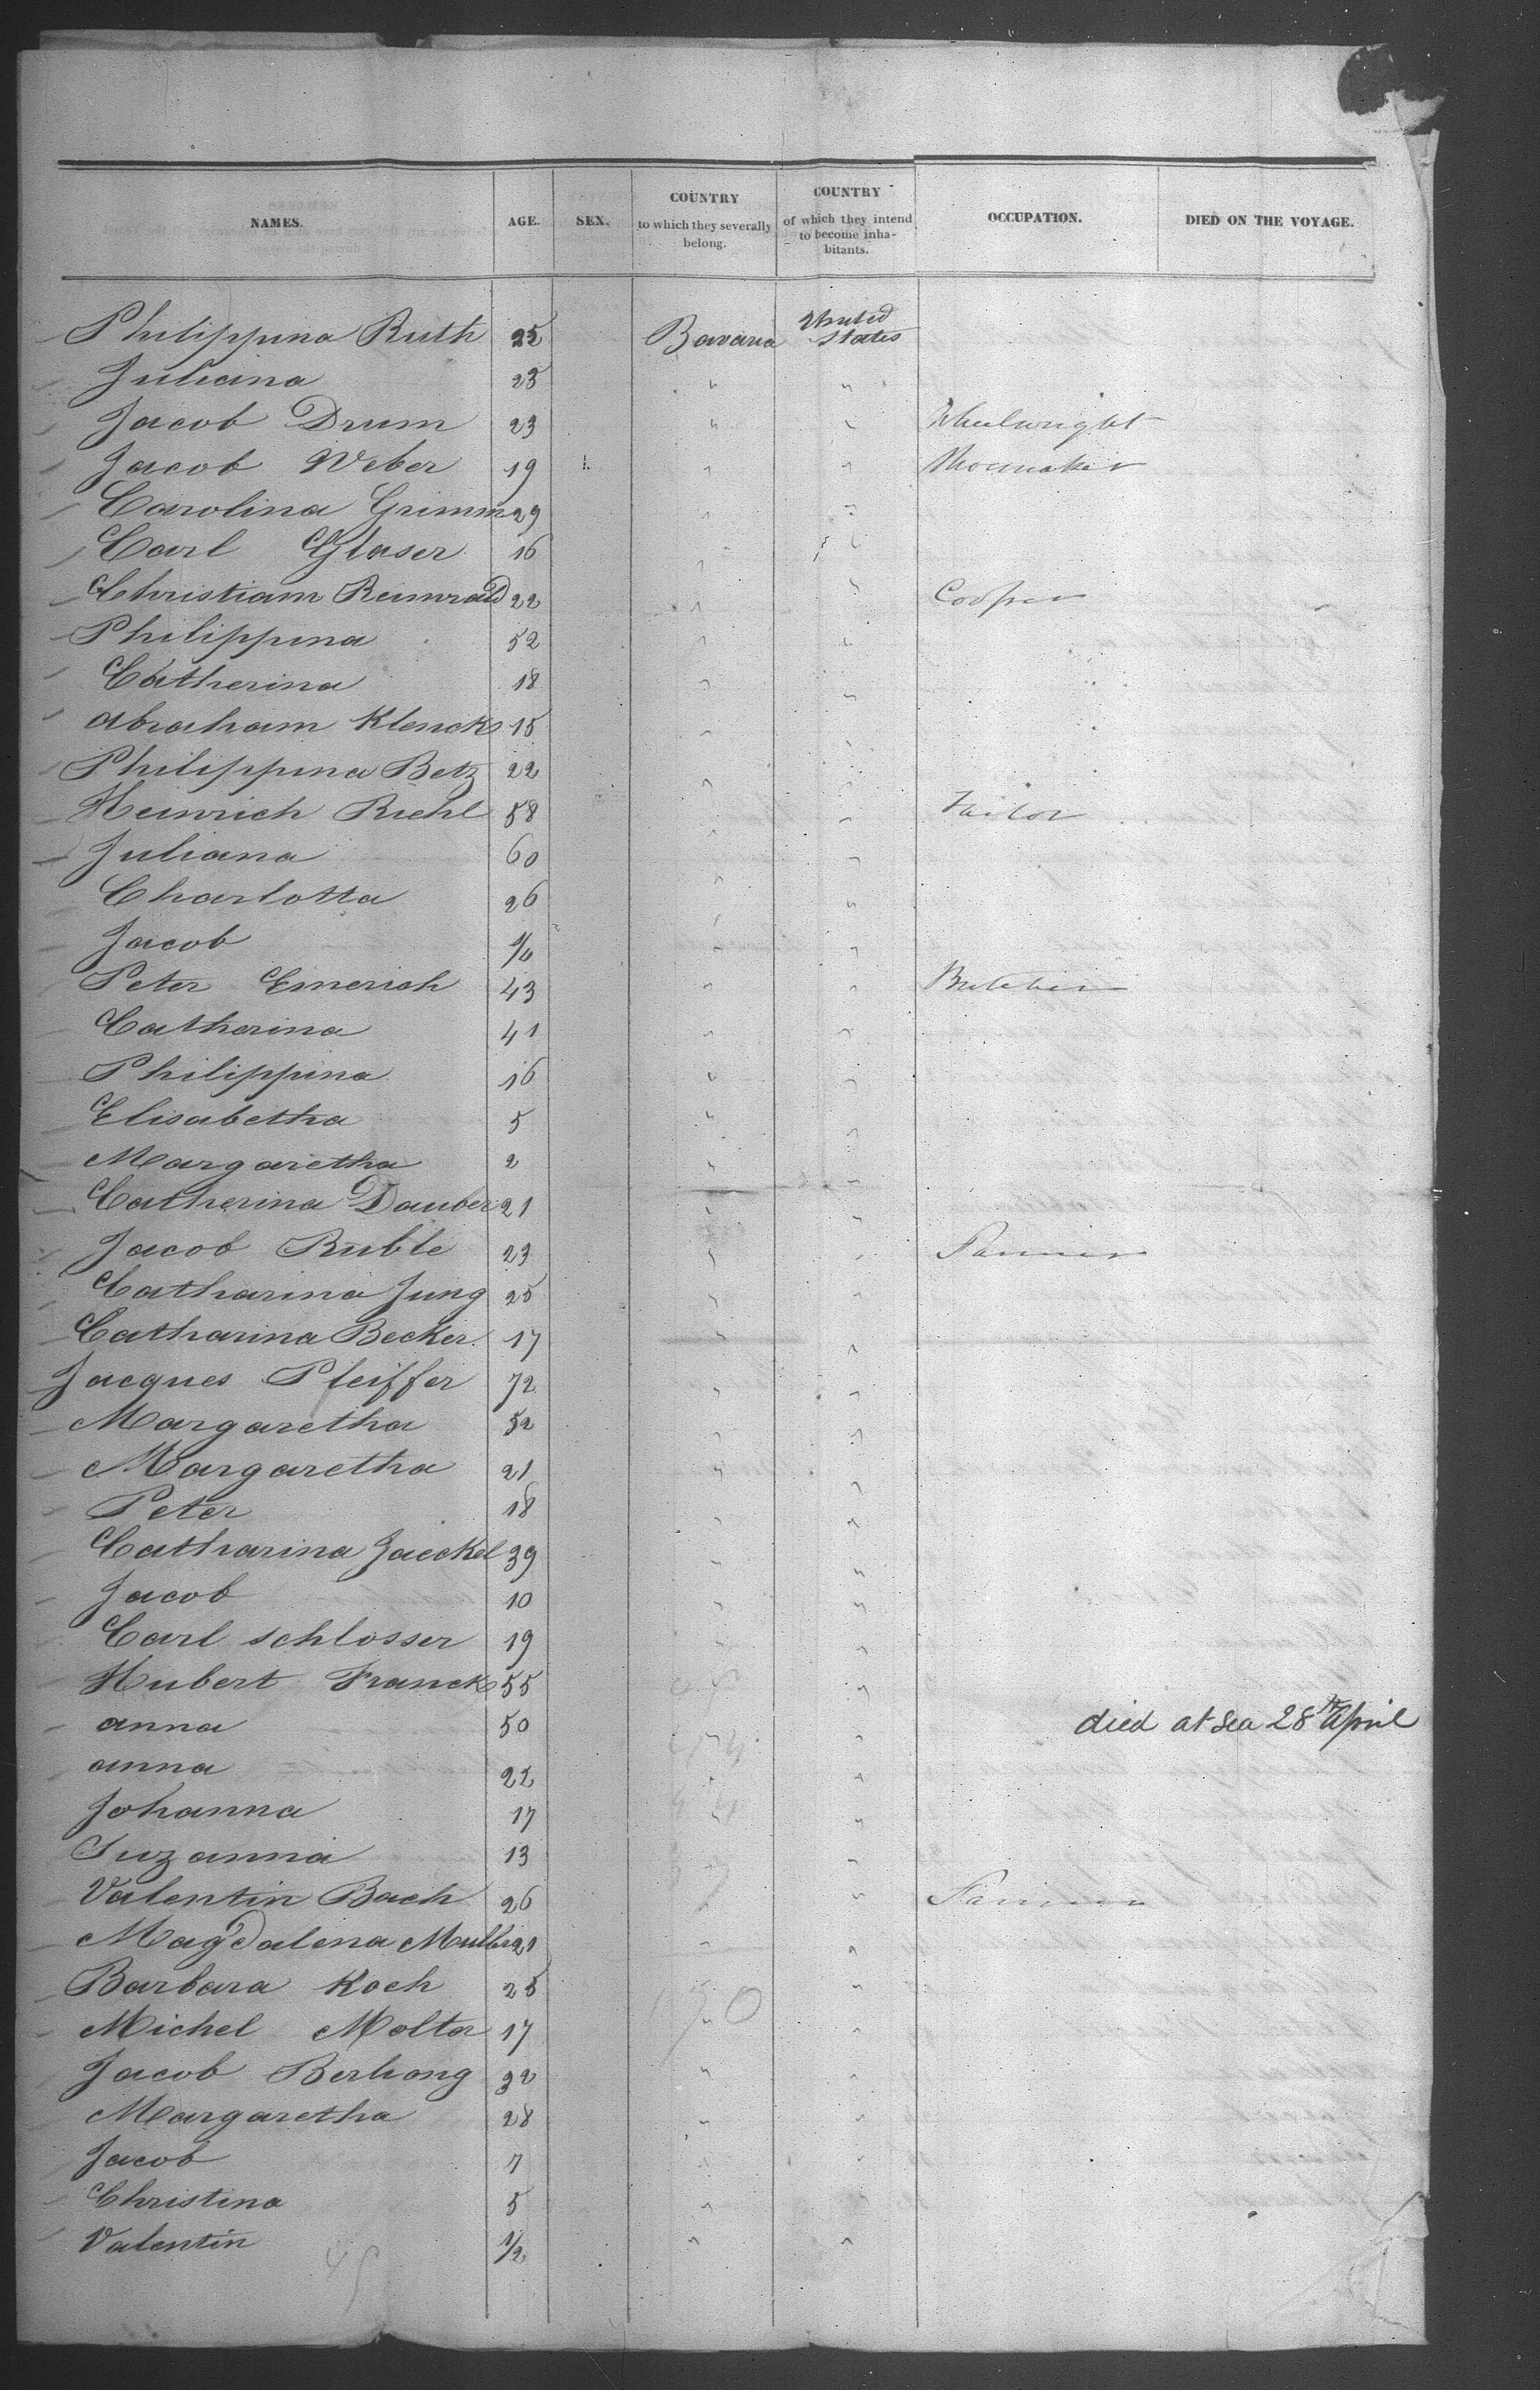 NAMES. AGE. SEX. COUNTRY to which they severally belong. COUNTRY of which they intend to become inha-bitants. OCCUPATION. DIED ON THE VOYAGE.
Philippina Ruth 25 Bavaria United States
Juliana 23 " "
Jacob Drum 23 " " Wheelwright
Jacob Weber 19 " " Shoemaker
Carolina Grimm 29 " "
Carl Glaser 16 " "
Christiam 22 " " Cooper
Philippina 52 " "
Catherina 18 " "
Abraham Klenck 15 " "
Philippina Betz 22 " "
Heinrich Riehl 58 " " Tailor
Juliana 60 " "
Charlotta 26 " "
Jacob " "
Peter Emerich 43 " " Butcher
Catherina 41 " "
Philippina 16 " "
Elisabetha 5 " "
Margaretha 2 " "
Catherina Dauber 21 " "
Jacob Ruble 23 " " Farmer
Catharina Jung 25 " "
Catharina Becker 17 " "
Jacques Pfeiffer 72 " "
Margaretha 52 " "
Margaretha 21 " "
Peter 18 " "
Catharina Jaeckel 39 " "
Jacob 10 " "
Carl Schlosser 19 " "
Hubert Franck 55 " "
anna 50 " " died at sea 28th April
anna 22 " "
Johanna 17 " "
Suzanna 13 " "
Valentin Bach 26 " " Farmer
Magdalena Muller 21 " "
Barbara Koch 25 " "
Michel Molter 17 " "
Jacob Berhang 32 " "
Margaretha 28 " "
Jacob 7 " "
Christina 5 " "
Valentin 1/2 " "
45